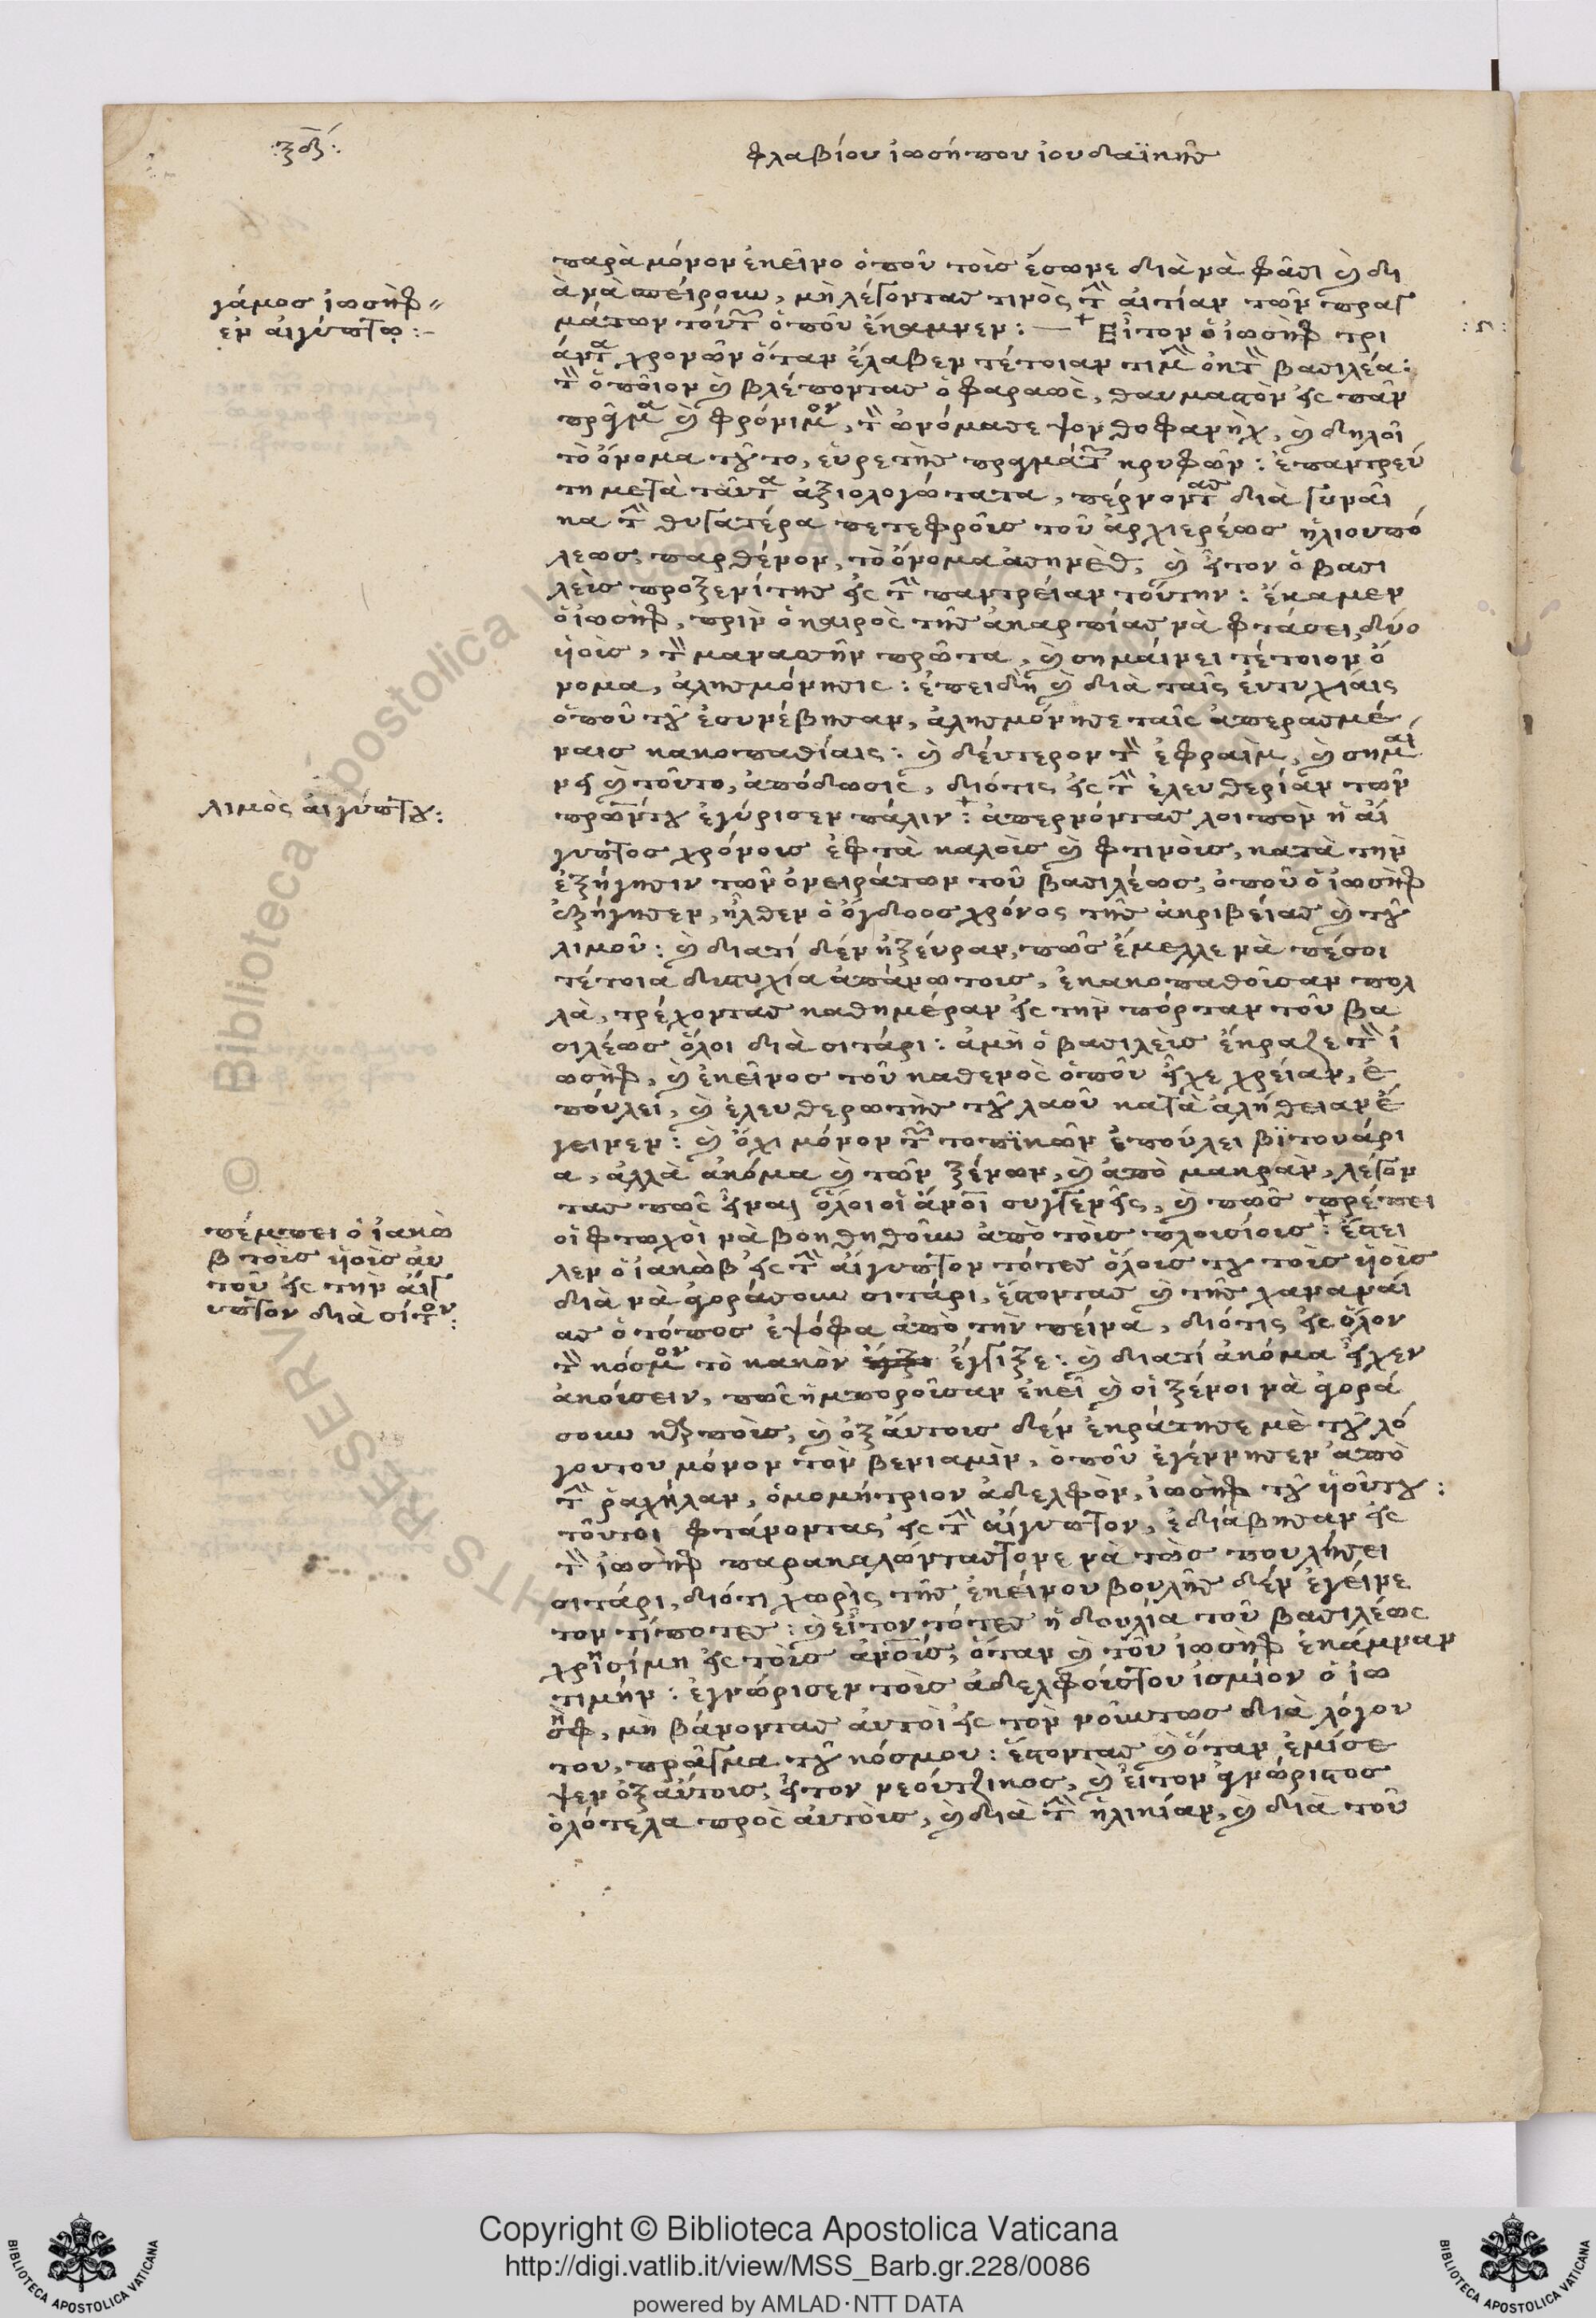 :ξδ:
φλαβίου ἰωσήπου ἰουδαϊκῆς
παρὰ μόνον ἐκεῖνο ὁποῦ τοὶς ἔσωνε διὰ νὰ φᾶσι καὶ δι
ὰ νὰ σπείρουν, μὴ λέγοντας τινὸς τὴν αἰτίαν τῶν πραγ
μάτων τούτων ὁποῦ ἔκαμνεν: — Εἶτον ὁ ἰωσὴφ τρι
άντα χρονῶν ὅταν ἔλαβεν τέτοιαν τιμὴν ἐκ τὸν βασιλέα:
τὸν ὁποῖον καὶ βλέποντας ὁ φαραωὲς, θαυμαστὸν εἰς πᾶν
πρᾶγμα καὶ φρόνιμον, τὸν ὠνόμασε ψονθοφανὴχ, καὶ δηλοῖ
τὸ ὄνομα τοῦτο, εὑρετὴς πραγμάτων κρυφῶν: ἐπαντρεύ
τη μετὰ ταῦτα ἀξιολογώτατα, πέρνοντας διὰ γυναῖ
κα τὴν θυγατέρα πετεφροῖς τοῦ ἀρχιερέως ἡλιουπό
λεως, παρθένον, τὸ ὄνομα ἀσηνὲθ, καὶ εἶτον ὁ βασι
λεὶς προξενίτης εἰς τὴν παντρείαν τούτην: ἔκαμεν
ὁ ἰωσὴφ, πρὶν ὁ καιρὸς τῆς ἀκαρπίας νὰ φτάσει, δύο
ὑοὶς, τὸν μανασὴν πρῶτα, καὶ σημαίνει τέτοιον ὄ
νομα, ἀλησμόνησις: ἐπειδὴ καὶ διὰ ταῖς ἐντυχίαις
ὁποῦ τοῦ ἐσυνέβησαν, ἀλησμόνησε ταῖς ἀπερασμέ
ναις κακοπαθίαις: καὶ δεύτερον τὸν ἐφραὶμ, καὶ σημαί
νει καὶ τοῦτο, ἀπόδωσις, διότις εἰς τὴν ἐλευθερίαν τῶν
πρώτων του ἐγύρισεν πάλιν: ἀπερνόντας λοιπὸν ἡ αἴ
γυπτος χρόνοις ἑφτὰ καλοὶς καὶ φτινοὶς, κατὰ τὴν
ἐξήγησιν τῶν ὀνειράτων τοῦ βασιλέως, ὁποῦ ὁ ἰωσὴφ
ἐξήγησεν, ἦλθεν ὁ ὄγδοος χρόνος τῆς ἀκριβείας καὶ τοῦ
λιμοῦ: καὶ διατί δὲν ἠξεύραν, πῶς ἔμελλε νὰ πέσοι
τέτοια δυστυχία ἀπάνω τοις, ἐκακοπαθοῖσαν πολ
λὰ, τρέχοντας καθημέραν εἰς τὴν πόρταν τοῦ βα
σιλέως ὅλοι διὰ σιτάρι: ἀμὴ ὁ βασιλεὶς ἔκραζε τὸν ἰ
ωσὴφ, καὶ ἐκεῖνος τοῦ καθενὸς ὁποῦ εἶχε χρείαν, ἐ
πούλει, καὶ ἐλευθερωτὴς τοῦ λαοῦ κατὰ ἀλήθειαν ἐ
γεινεν: καὶ ὄχι μόνον τῶν τοπϊκῶν ἐπούλει βϊτουάρι
α, ἀλλὰ ἀκόμα καὶ τῶν ξένων, καὶ ἀπὸ μακρὰν, λέγον
τας πῶς εἶναι ὅλοι οἱ ἄνοι συγγενεῖς, καὶ πῶς πρέπει
οἱ φτωχοὶ νὰ βοηθηθοῦν ἀπὸ τοὶς πλοισίοις: ἔστει
λεν ὁ ἰακὼβ εἰς τὴν αἴγυπτον τότες ὅλοις του τοὶς ὑοὶς
διὰ νὰ ἀγοράσουν σιτάρι, ἔστοντας καὶ τῆς χαναναί
ας ὁ τόπος ἐψόφα ἀπὸ τὴν πεῖνα, διότις εἰς ὅλον
τὸν κόσμον τὸ κακὸν ἔγγιξε: καὶ διατί ἀκόμα εἶχεν
ἀκοίσειν, πῶς ἠμποροῖσαν ἐκεῖ καὶ οἱ ξένοι νὰ ἀγορά
γουτου μόνον τὸν βενιαμὶν, ὁποῦ ἐγέννησεν ἀπὸ
τὴν ῥαχήλαν, ὁμομήτριον ἀδελφὸν, ἰωσὴφ τοῦ ὑοῦ του:
τοῦτοι φτάνοντας εἰς τὴν αἴγυπτον, ἐδιάβησαν εἰς
τὸν ἰωσὴφ παρακαλώντας τονε νὰ τοὶς πουλήσει
σιτάρι, διότι χωρὶς τῆς ἐκείνου βουλῆς δὲν ἐγεινε
τον τίποτες: καὶ εἶτον τότες ἡ δουλία τοῦ βασιλέως
χρησίμη εἰς τοὶς ἀνοὶς, ὅταν καὶ τοῦ ἰωσὴφ ἐκάμναν
τιμήν: ἐγνώρισεν τοὶς ἀδελφοίς του ἰσμίον ὁ ἰω
σὴφ, μὴ βάνοντας αὐτοὶ εἰς τὸν νοῦν τως διὰ λόγον
του, πρᾶγμα τοῦ κόσμου: ἔστοντας καὶ ὅταν ἐμίσε
ψεν ὀξαύτοις, εἶτον νεούτζικος, καὶ εἶτον ἀγνώριστος
ὁλότελα πρὸς αὐτοὶς, καὶ διὰ τὴν ἡλικίαν, καὶ διὰ τοῦ
γάμος ἰωσὴφ
ἐν αἰγύπτῳ:-
λιμὸς αἰγύπτου:
πέμπει ὁ ἰακὼ
β τοὶς ὑοὶς αὐ
τοῦ εἰς τὴν αἴγ
υπτον διὰ σίτον:
Copyright © Biblioteca Apostolica Vaticana
http://digi.vatlib.it/view/MSS_Barb.gr.228/0086
powered by AMLAD·NTT DATA
BIBLIOTECA APOSTOLICA VATICANA
BIBLIOTECA APOSTOLICA VATICANA